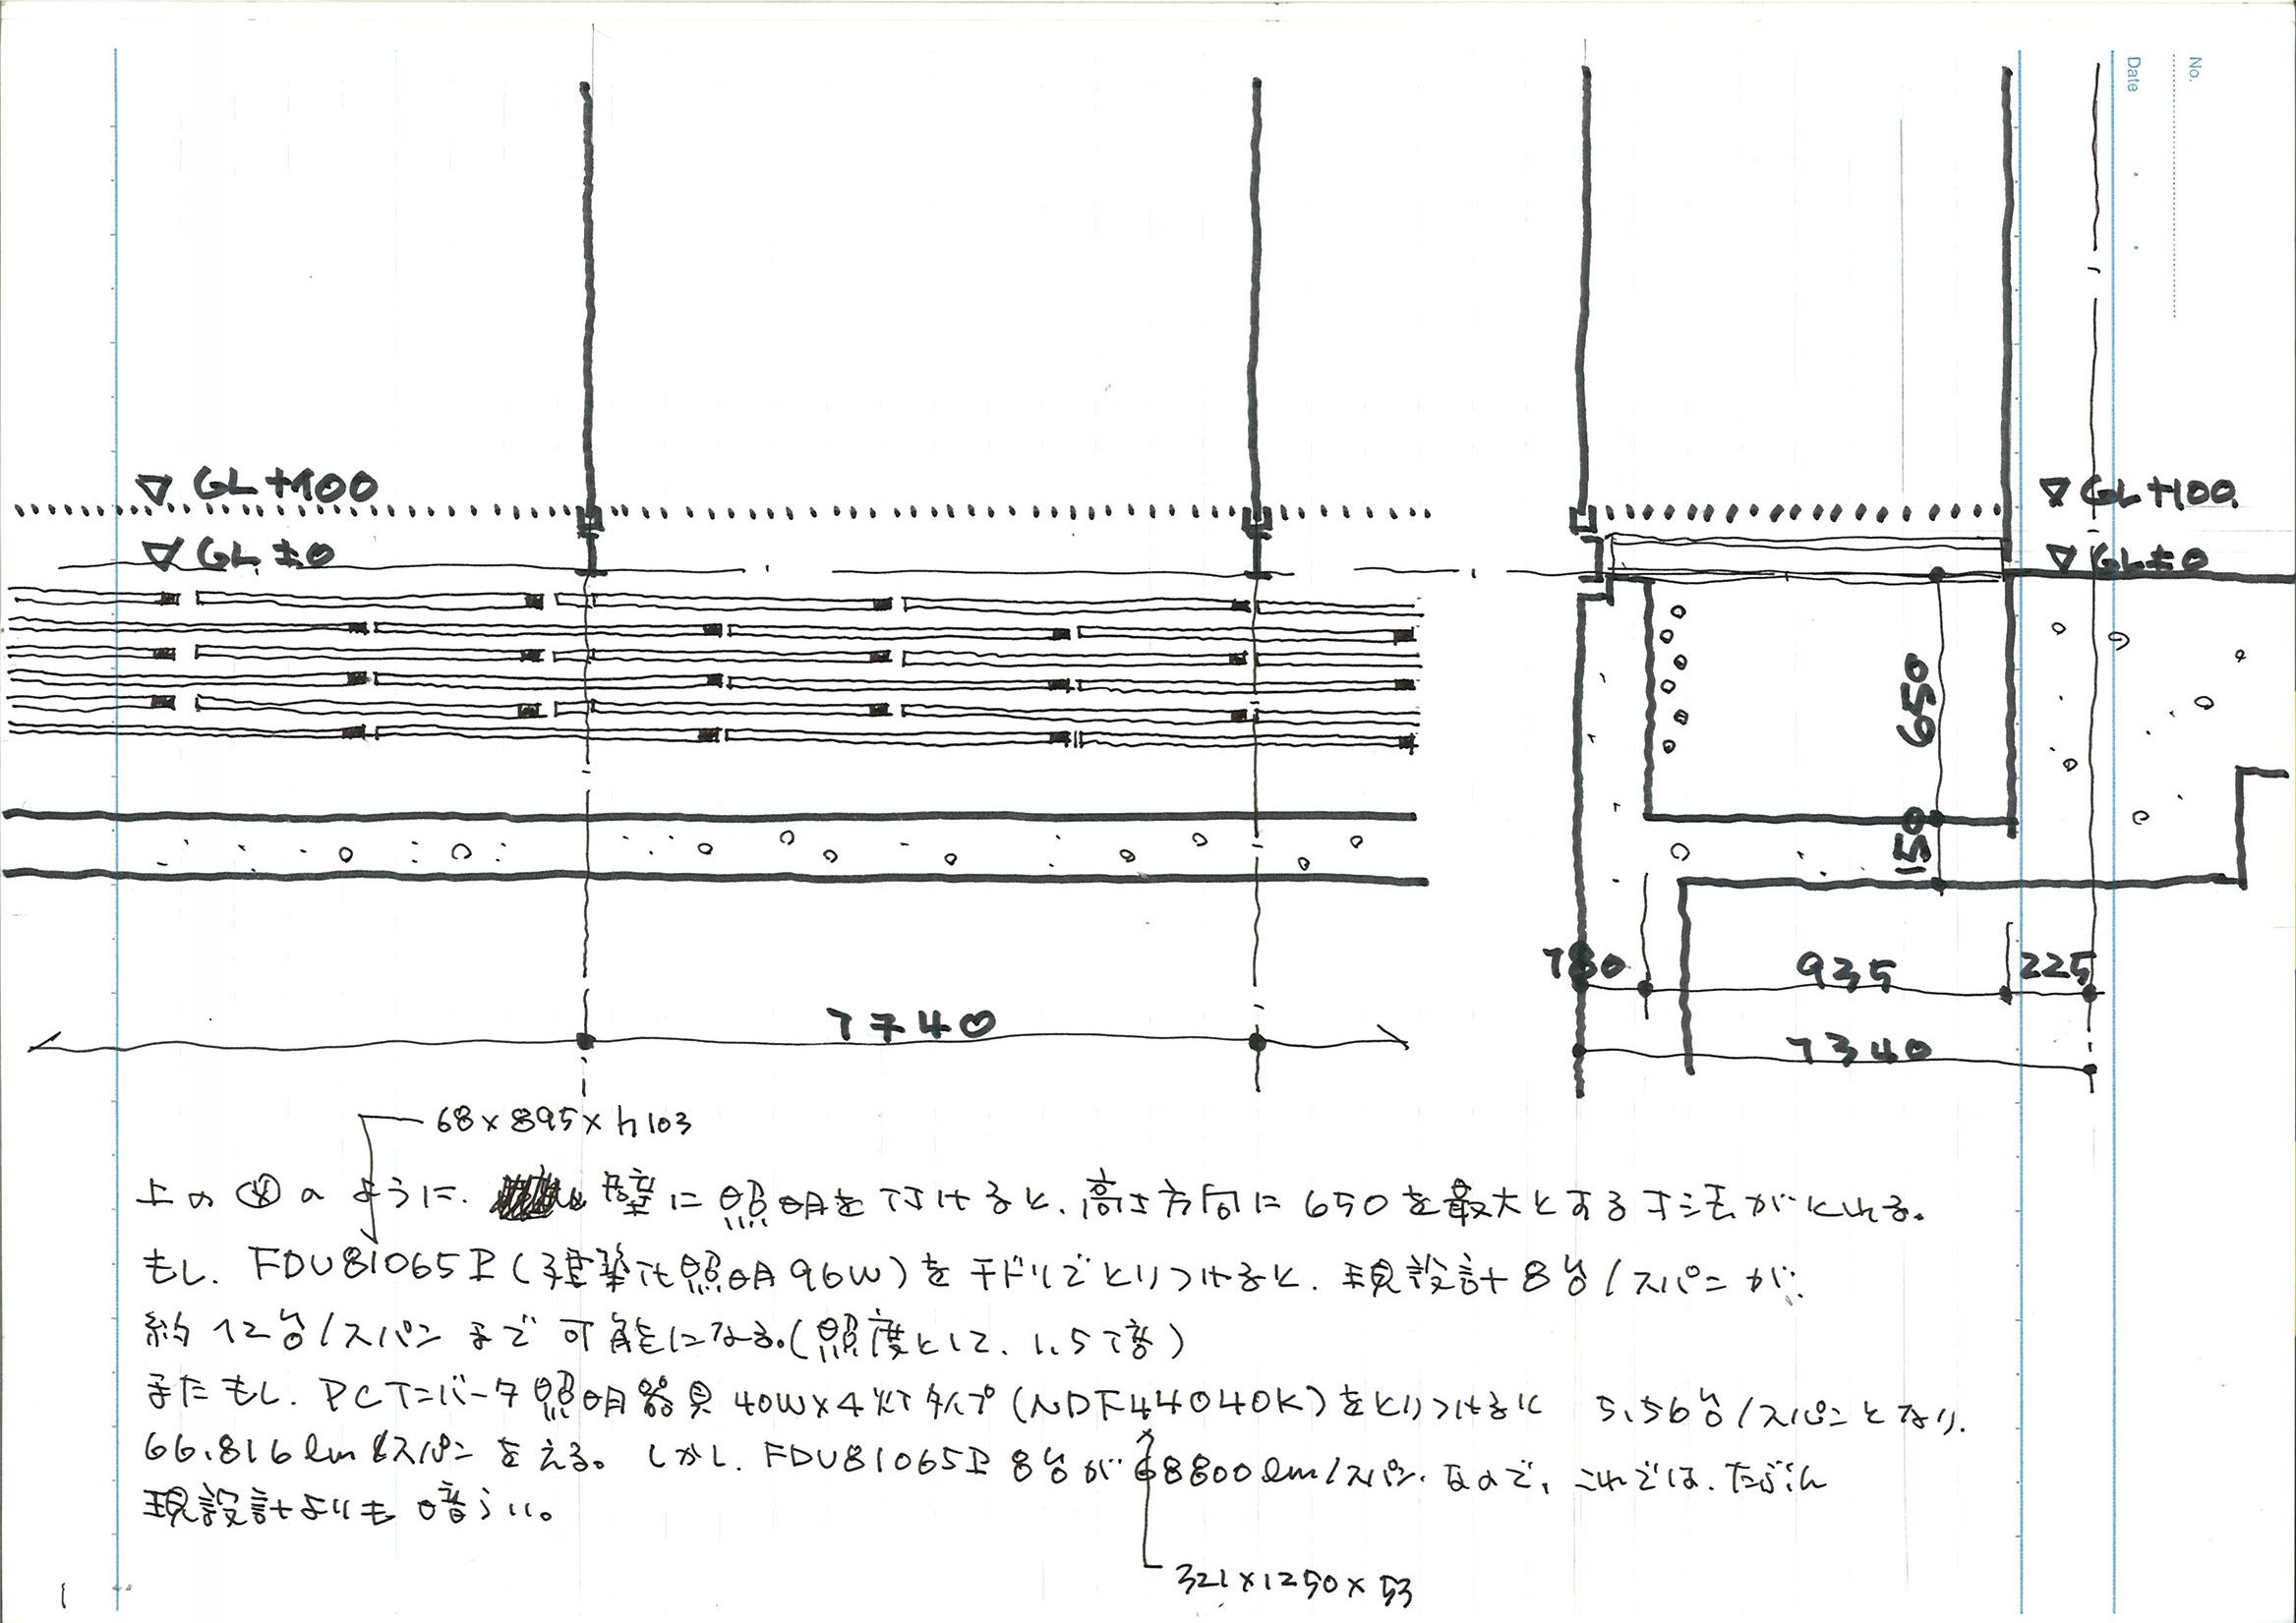 No.
Date
▽GL+100
▽GL±0
▽GL+100
▽GL±0
650
150
180
935
225
1740
1340
68×895×h103
上の図のように、壁に照明を付けると、高さ方向に650を最大とする寸法がとれる。
もし、FDU81065P(建築化照明96W)を千ドリでとりつけると、現設計8台/スパンが、
約12台/スパンまで可能になる。(照度として、1.5倍)
またもし、PCTニバータ照明器具40W×4灯タイプ(NDF44040K)をとりつけると 5.56台/スパンとなり、
66.816lm/スパンをえる。しかし、FDU81065P 8台が68800lm/スパン、なので、これでは、たぶん
現設計よりも暗らい。
321×1250×53